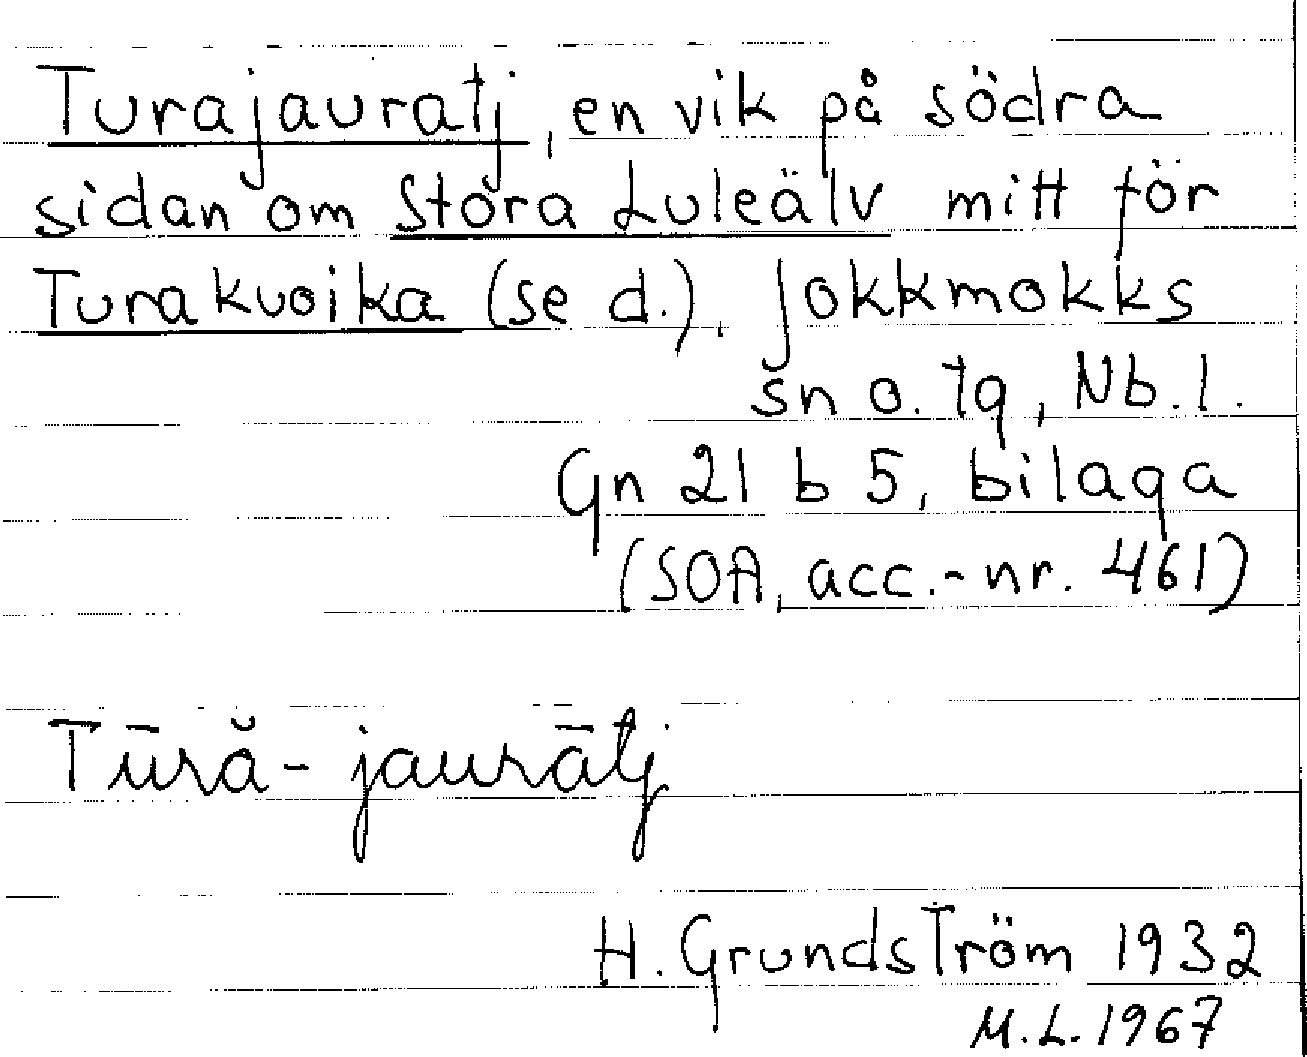 Turajauratj, en vik på södra
sidan om Stora Luleälv mitt för
Turakuoika (se d.). Jokkmokks
sn o. tg, Nb.l.
Gn 21 b 5, bilaga
(SOA, acc.-nr. 461)
Tūră-jaurātj
H. Grundström 1932
M.L. 1967